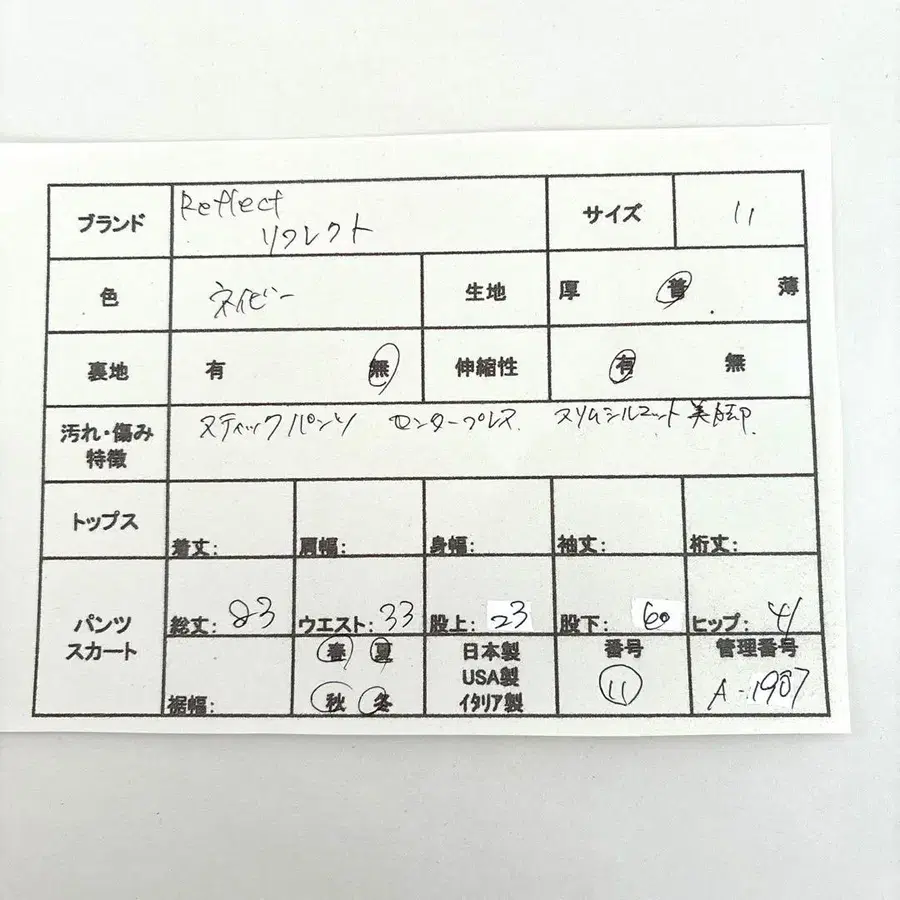 ブランド Reflect サイズ 11
リフレクト
色 ネイビー 生地 厚 普 薄
裏地 有 無 伸縮性 有 無
汚れ・傷み スティックパンツ センタープレス スリムシルエット 美脚
特徴
トップス
着丈: 肩幅: 身幅: 袖丈: 裄丈:
パンツ
スカート
総丈: 83 ウエスト: 33 股上: 23 股下: 60 ヒップ: 41
裾幅:
春 夏
秋 冬
日本製
USA製
イタリア製
番号
11
管理番号
A-1987